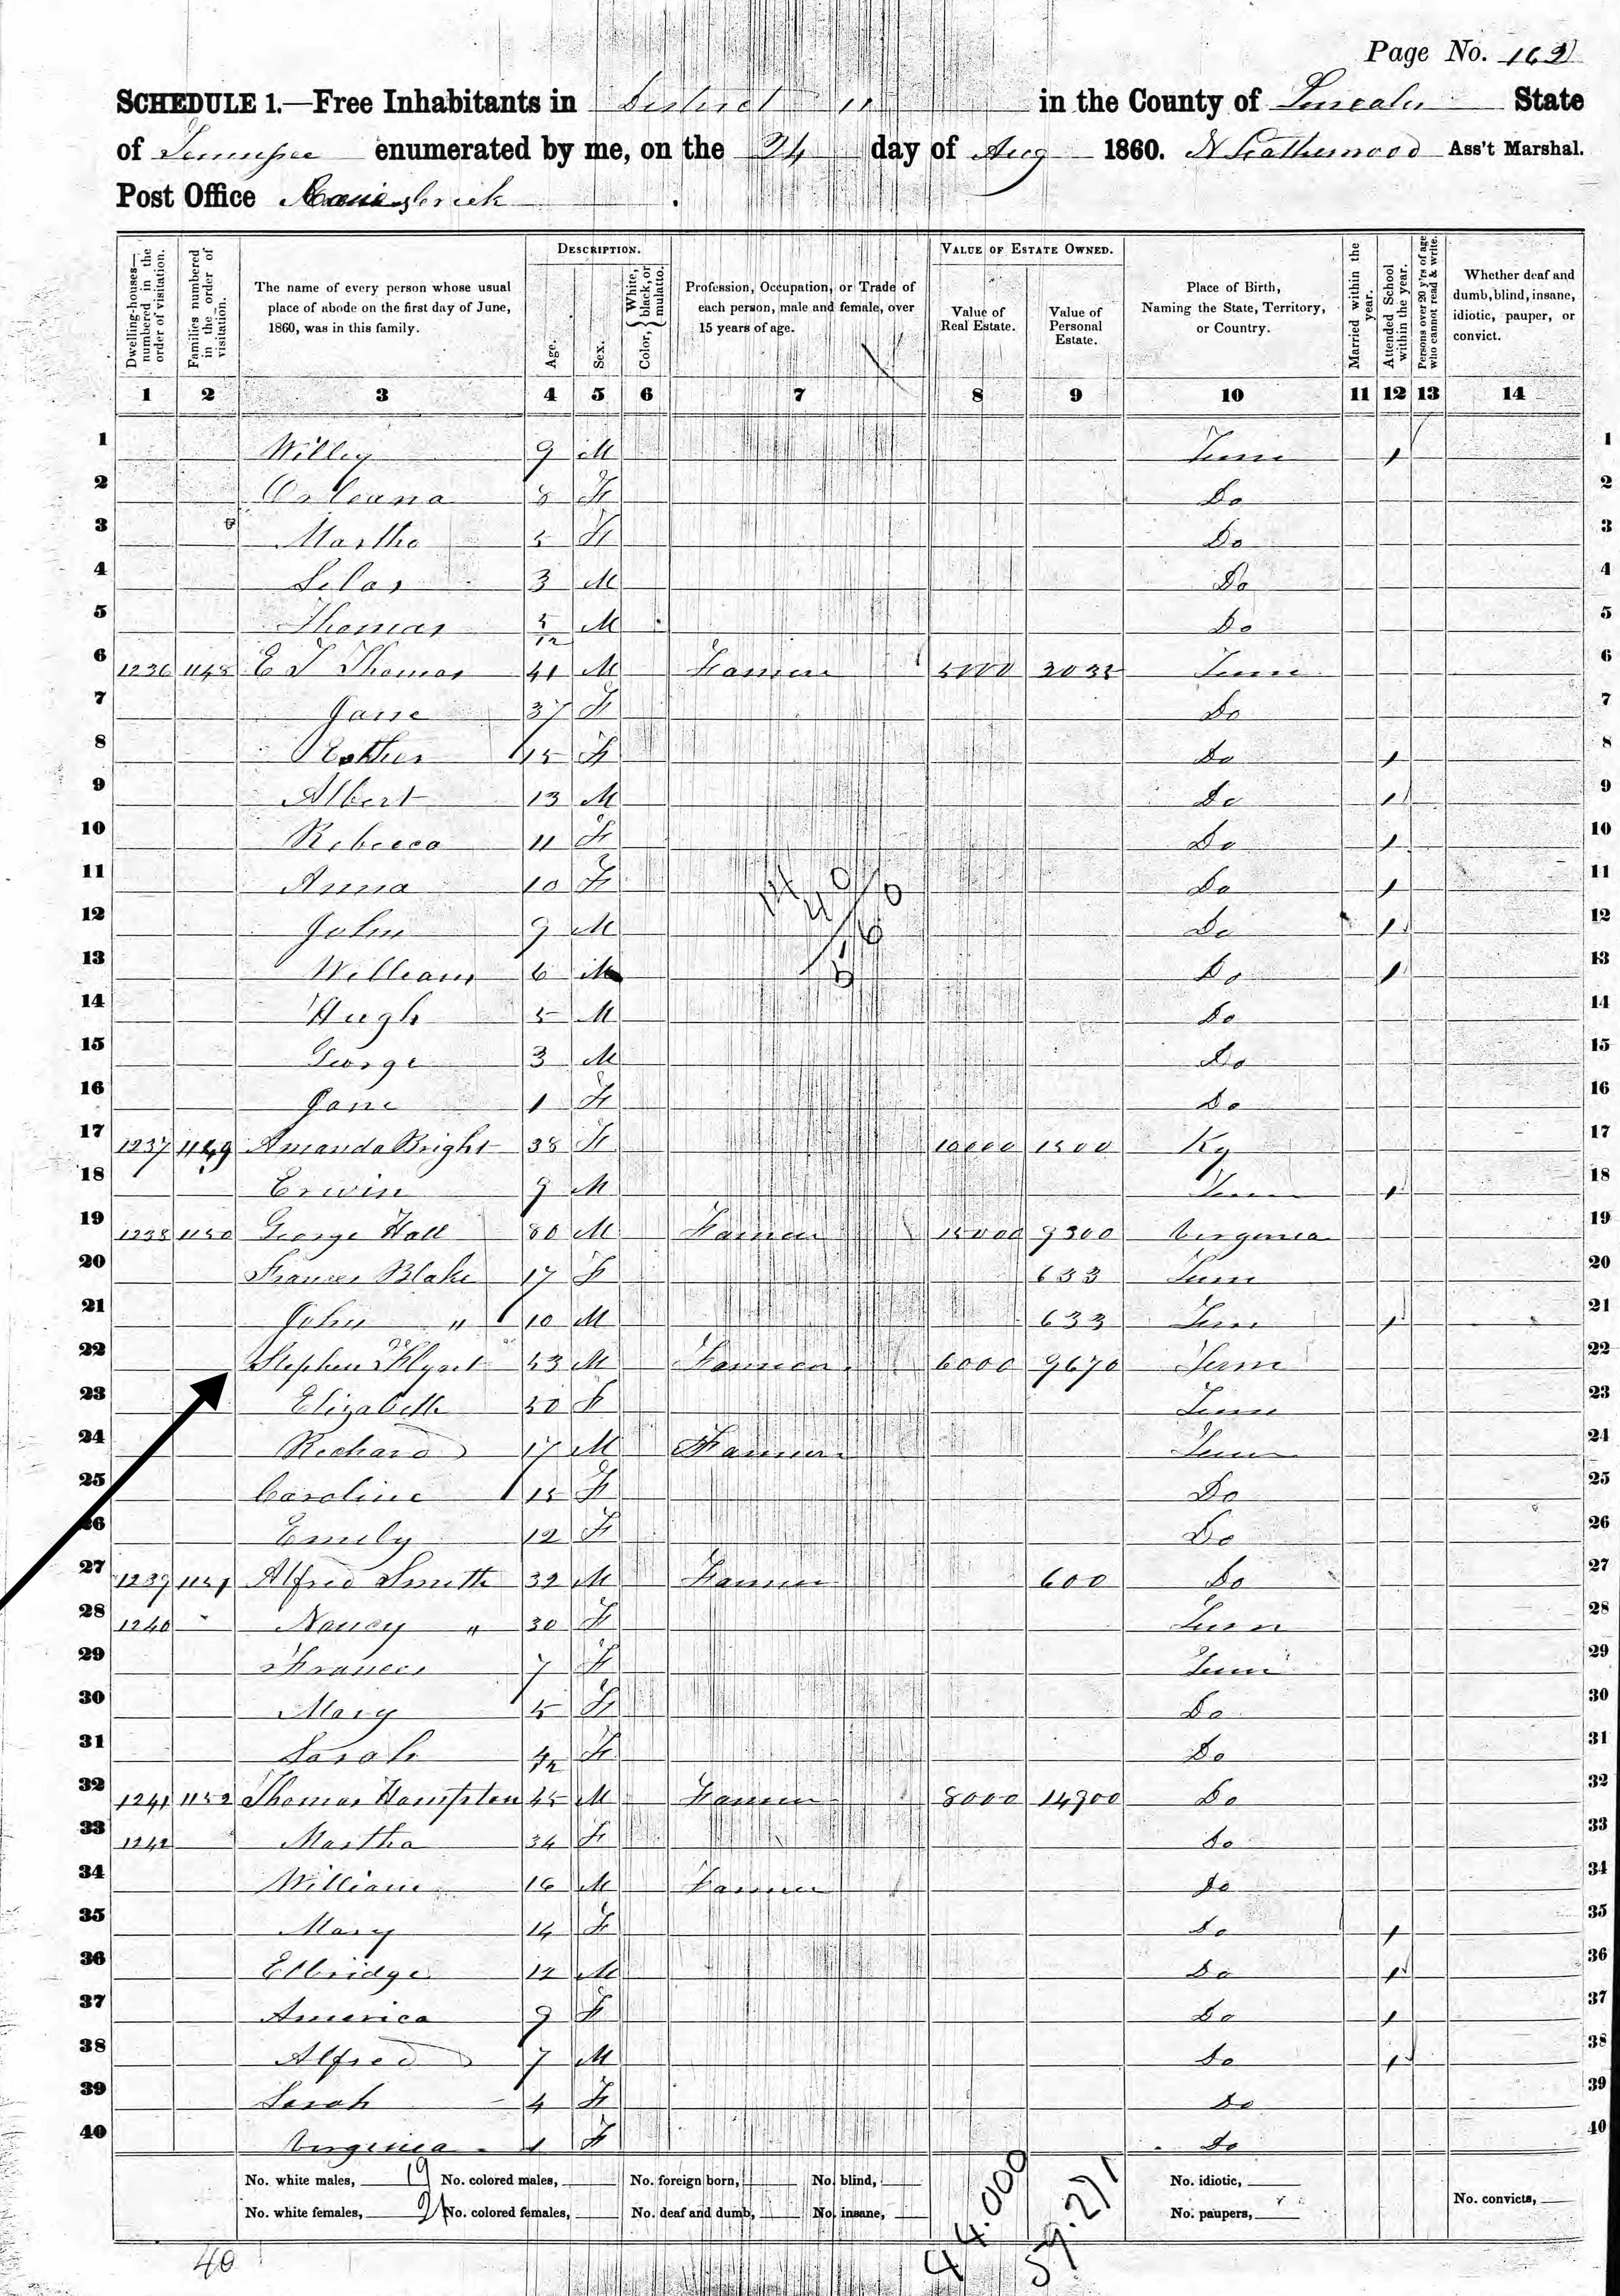 Page No. 162
SCHEDULE 1.—Free Inhabitants in District 11 in the County of Lincoln State
of Tennessee enumerated by me, on the 24 day of Aug 1860. N Leatherwood Ass't Marshal.
Post Office
DESCRIPTION. VALUE OF ESTATE OWNED.
Dwelling-houses—numbered in the order of visitation. Families numbered in the order of visitation. The name of every person whose usual place of abode on the first day of June, 1860, was in this family. Age. Sex. Color, { White, black, or mulatto. Profession, Occupation, or Trade of each person, male and female, over 15 years of age. Value of Real Estate. Value of Personal Estate. Place of Birth, Naming the State, Territory, or Country. Married within the year. Attended School within the year. Persons over 20 y'rs of age who cannot read & write. Whether deaf and dumb, blind, insane, idiotic, pauper, or convict.
1 2 3 4 5 6 7 8 9 10 11 12 13 14
1 Willey 9 M Tenn / 1
2 Orleana 8 F Do 2
3 Martha 5 F Do 3
4 Silas 3 M Do 4
5 Thomas 5/12 M Do 5
6 1236 1148 E T Thomas 41 M Farmer 5000 Tenn 6
7 Jane 37 F Do 7
8 Esther 15 F Do / 8
9 Albert 13 M Do / 9
10 Rebecca 11 F Do / 10
11 Anna 10 F Do / 11
12 John 9 M Do / 12
13 William 6 M Do / 13
14 Hugh 5 M Do 14
15 George 3 M Do 15
16 Jane 1 F Do 16
17 1237 1149 Amanda Bright 38 F 10000 1500 Ky 17
18 Erwin 9 M Tenn / 18
19 1238 1150 George Hall 80 M Farmer 15000 9300 Virginia 19
20 Frances Blake 17 F 633 Tenn 20
21 John " 10 M 633 Tenn / 21
22 Stephen Flynt 53 M Farmer 6000 9670 Tenn 22
23 Elizabeth 50 F Tenn 23
24 Richard 17 M Farmer Tenn 24
25 Caroline 15 F Do 25
26 Emily 12 F Do 26
27 1239 1151 Alfred Smith 32 M Farmer 600 Do 27
28 1240 Nancy " 30 F Tenn 28
29 Frances 7 F Tenn 29
30 Mary 5 F Do 30
31 Sarah 4/12 F Do 31
32 1241 1152 Thomas Hampton 45 M Farmer 8000 14900 Do 32
33 1242 Martha 34 F Do 33
34 William 16 M Farmer Do 34
35 Mary 14 F Do / 35
36 Elbridge 12 M Do / 36
37 America 9 F Do / 37
38 Alfred 7 M Do / 38
39 Sarah 4 F Do 39
40 Virginia 1 F Do 40
14
40
560
No. white males, 19 No. colored males, No. foreign born, No. blind, No. idiotic,
No. white females, 21 No. colored females, No. deaf and dumb, No. insane, No. paupers, No. convicts,
44.000
40